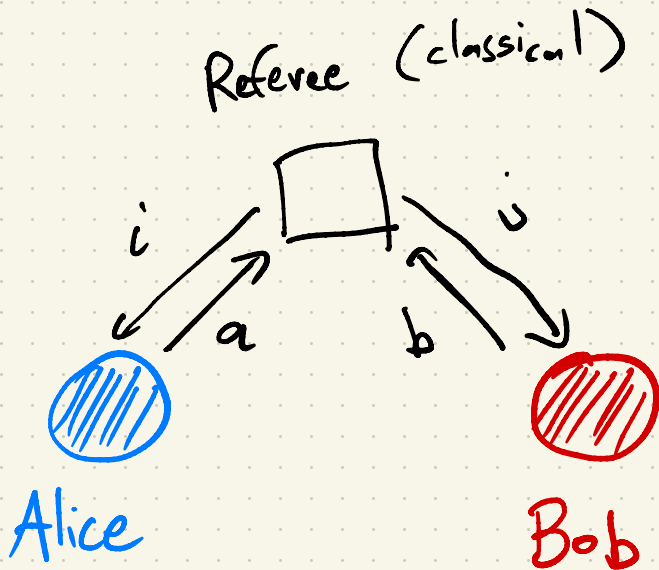 Referee (classical)
i j
a b
Alice Bob